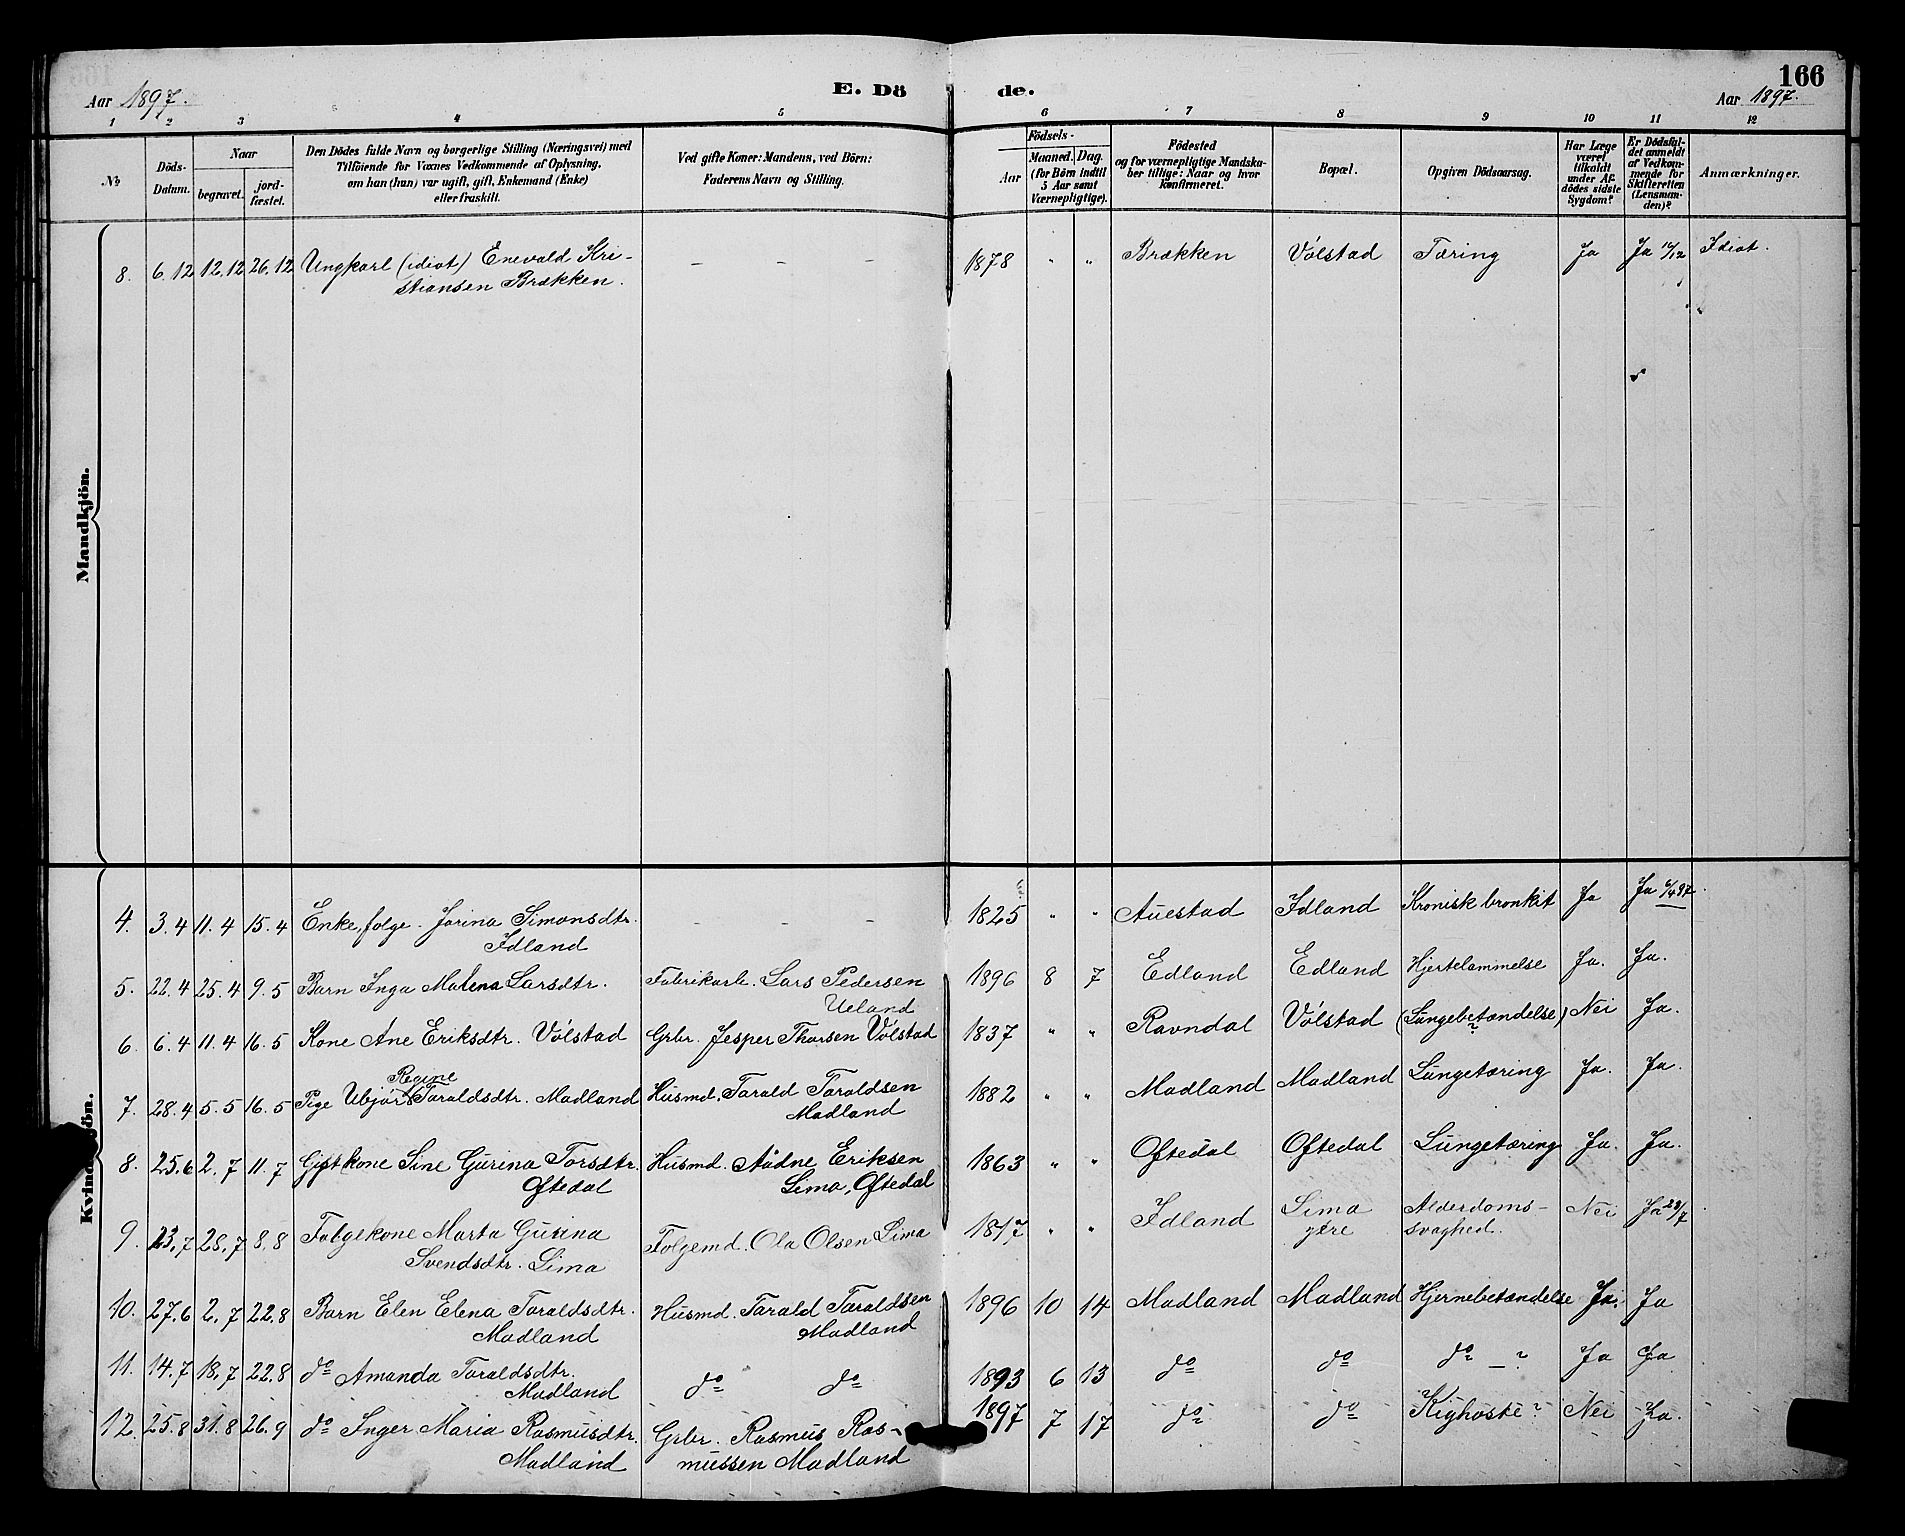 Aar 1897. E. Dö de. 166
Aar 1897.
1 2 3 4 5 6 7 8 9 10 11 12
No
Döds-Datum.
Naar
begravet.
jord-fæstet.
Den Dödes fulde Navn og borgerlige Stilling (Næringsvei) med
Tilföiende for Voxnes Vedkommende af Oplysning,
om han (hun) var ugift, gift, Enkemand (Enke)
eller fraskilt.
Ved gifte Koner: Mandens, ved Börn:
Faderens Navn og Stilling.
Födsels-
Aar
Maaned. Dag.
(for Börn indtil
5 Aar samt
Værnepligtige).
Födested
og for værnepligtige Mandska-
ber tillige: Naar og hvor
konfirmeret.
Bopæl.
Opgiven Dödsaarsag.
Har Læge
været
tilkaldt
under Af-
dödes sidste
Sygdom?
Er Dödsfal-
det anmeldt
af Vedkom-
mende for
Skifteretten
(Lensman-
den)?
Anmærkninger.
Mandkjön.
8. 6.12 12.12 26.12 Ungkarl (idiot) Enevald Kri- – – – 1878 " " Brækken Vølstad Tæring Ja Ja 12/12 Idiot.
stiansen Brækken.
Kvindekjön.
4. 3.4 11.4 15.4 Enke, folge. Jorina Simonsdtr. – – – 1825 " " Auestad Idland Kronisk bronkit Ja Ja 6/4 97
Idland
5. 22.4 25.4 9.5 Barn Inga Malena Larsdtr. Fabrikarb. Lars Pedersen 1896 8 7 Edland Edland Hjertelammelse Ja. Ja.
Ueland
6. 6.4 11.4 16.5 Kone Ane Eriksdtr. Vølstad Grbr. Jesper Thorsen Vølstad 1837 " " Ravndal Vølstad (Lungebetændelse) Nei Ja.
?
Regine
7. 28.4 5.5 16.5 Pige Ubjør Taraldsdtr. Madland Husmd. Tarald Taraldsen 1882 " " Madland Madland Lungetæring Ja. Ja.
Madland
8. 25.6 2.7 11.7 Gift kone Sine Gurina Torsdtr. Husmd. Aadne Eriksen 1863 " " Oftedal Oftedal Lungetæring Ja. Ja.
Oftedal Lima, Oftedal
9. 23.7 28.7 8.8 Folgekone Marta Gurina Folgemd. Ola Olsen Lima 1817 " " Idland Lima Alderdoms- Nei Ja 28/7
Svendsdtr. Lima ytre svaghed.
10. 27.6 2.7 22.8 Barn Elen Elena Taraldsdtr. Husmd. Tarald Taraldsen 1896 10 14 Madland Madland Hjernebetændelse Ja. Ja
Madland Madland
11. 14.7 18.7 22.8 do Amanda Taraldsdtr. do do 1893 6 13 do do do – ? Ja Ja
Madland
12. 25.8 31.8 26.9 do Inger Maria Rasmusdtr. Grbr. Rasmus Ras- 1897 7 17 do do Kighoste? Nei Ja.
Madland mussen Madland